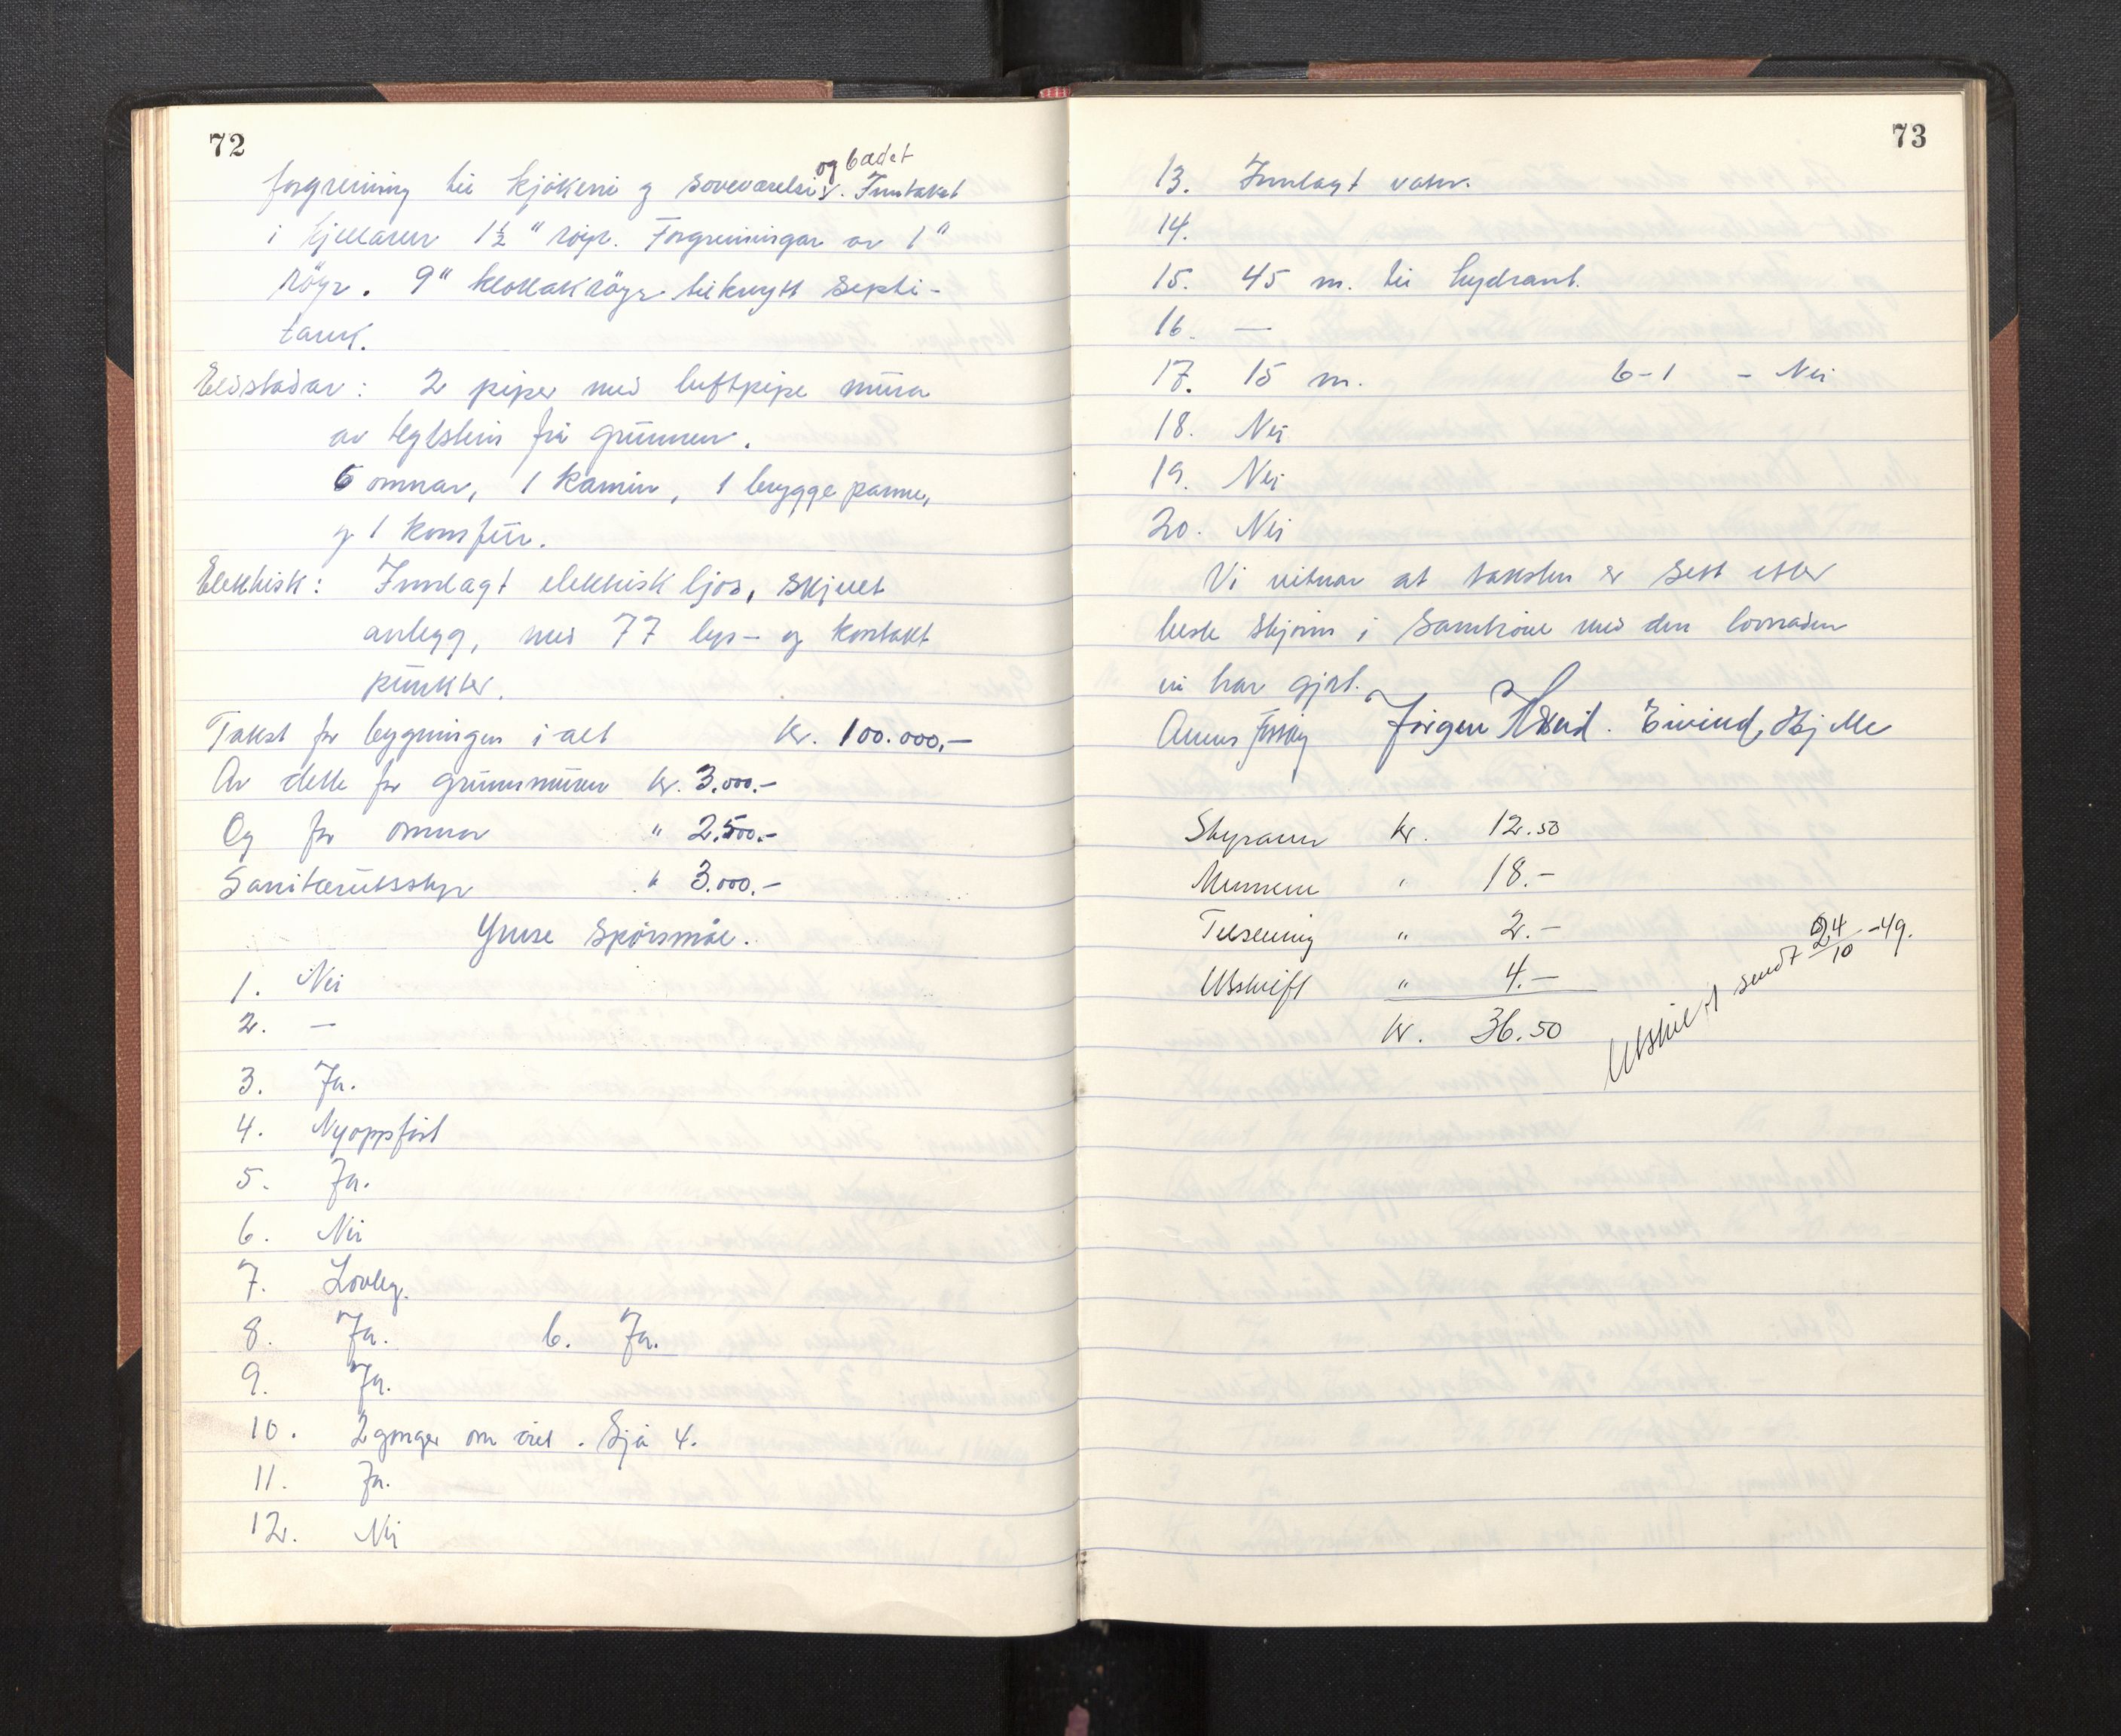 72
forgreining til kjøkeni og soveværelsi og badet. Inntaket
i kjellaren 1½" røyr. Forgreiningar av 1"
røyr. 9" kloakkrøyr tilknytt septi-
tank.
Eldstadar: 2 piper med luftpipe mura
av teglstein frå grunnen.
6 omnar, 1 kamin, 1 bryggepanne,
og 1 komfür.
Elektrisk: Innlagt elektrisk ljos, skjult
anlegg, med 77 lys- og kontakt
punkter.
Takst for bygningen i alt kr. 100.000,-
Av dette for grunnmuren kr. 3.000.-
Og for omnar " 2.500.-
Sanitærutsstyr " 3.000.-
Ymse spørsmål.
1. Nei
2. —
3. Ja.
4. Nyoppført
5. Ja.
6. Nei
7. Lovleg.
8. Ja. b. Ja.
9. Ja.
10. 2 gonger om året. Sjå 4.
11. Ja.
12. Nei
73
13. Innlagt vatn.
14.
15. 45 m. til hydrant.
16. —
17. 15 m. b-1 - Nei
18. Nei
19. Nei
20. Nei
Vi vitnar at taksten er sett etter
beste skjønn i samhøve med den lovnaden
vi har gjort.
Jørgen Eivind Hjelle
Styraren kr. 12.50
Mennene " 18.-
Tilsening " 2.-
Utskrift " 4.-
kr. 36.50
Utskrift sendt 24/10 -49.